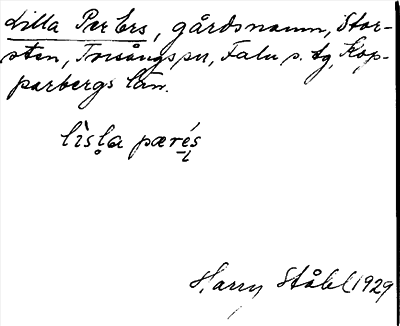 Lilla Per Ers, gårdsnamn, Stor-
sten, Torsångs sn, Falu s. tg, Kop-
parbergs län.
lìsla pærés
Harry Ståhl 1929